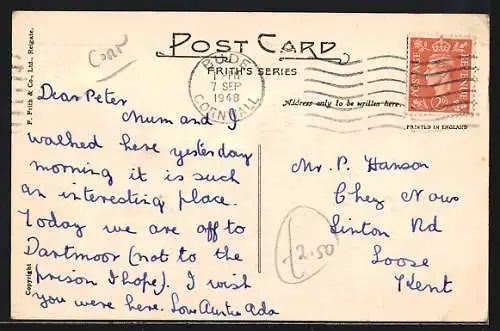 Corn
POST CARD
FRITH'S SERIES
BUDE
7 SEP
1948
CORNWALL
POSTAGE
REVENUE
Address only to be written here.
PRINTED IN ENGLAND
F. Frith & Co., Ltd., Reigate.
Copyright
Dear Peter
Mum and I
walked here yesterday
morning it is such
an interesting place.
Today we are off to
Dartmoor (not to the
prison I hope). I wish
you were here. Love Auntie Ada
Mr. P. Hanson
Chez Nous
Linton Rd
Loose
Kent
£2.50